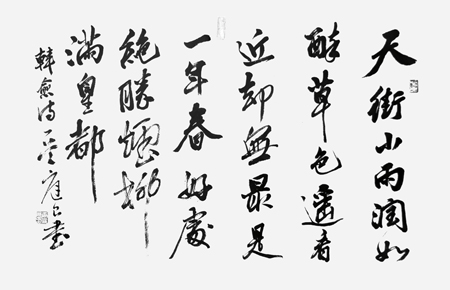 天街小雨润如
酥草色遥看
近却無最是
一年春好處
絶勝煙柳
滿皇都
韓愈诗